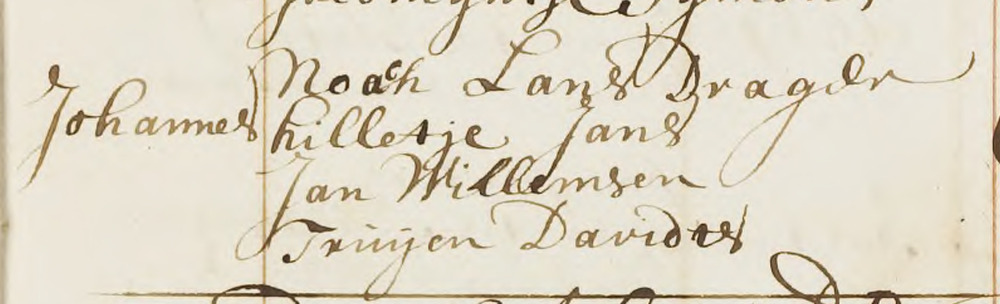 Johannes
Noach Lans Drager
hilletje Jans
Jan Willemsen
Truijen Davidts